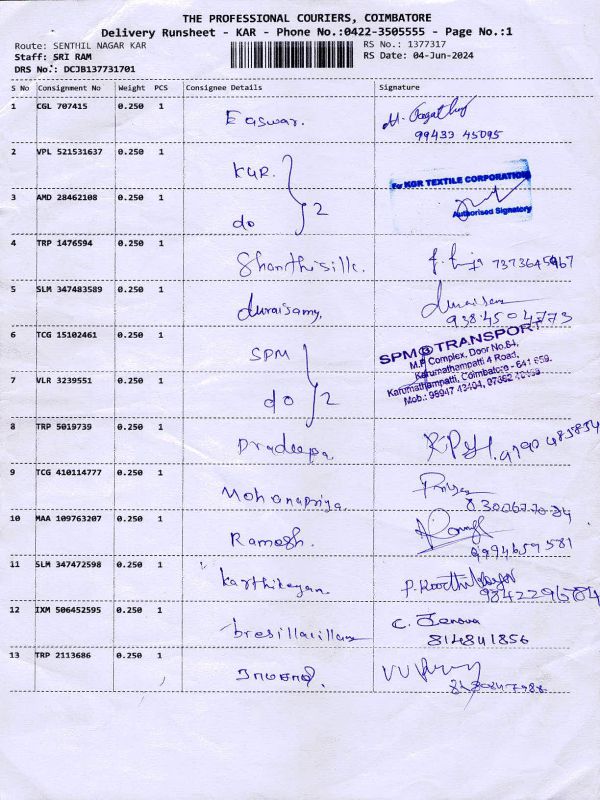 THE PROFESSIONAL COURIERS, COIMBATORE
Delivery Runsheet - KAR - Phone No.:0422-3505555 - Page No.:1
Route: SENTHIL NAGAR KAR
RS No.: 1377317
Staff: SRI RAM
RS Date: 04-Jun-2024
DRS No.: DCJB137731701
S No Consignment No Weight PCS Consignee Details Signature
1 CGL 707415 0.250 1 Easwar.
99433 45095
2 VPL 521531637 0.250 1 KGR.
For KGR TEXTILE CORPORATION
Authorised Signatory
3 AMD 28462108 0.250 1 do 2
4 TRP 1476594 0.250 1 Shanthisilk. 7373645967
5 SLM 347483589 0.250 1 duraisamy,
9384504773
6 TCG 15102461 0.250 1 SPM
SPM TRANSPORT
M.P Complex, Door No.84,
Karumathampatti 4 Road,
Karumathampatti, Coimbatore - 641 659.
Mob.: 98947 43404,
7 VLR 3239551 0.250 1 do 2
8 TRP 5019739 0.250 1 Pradeepa
9 TCG 410114777 0.250 1 Mohanapriya. Priya
10 MAA 109763207 0.250 1 Ramesh.
9994659581
11 SLM 347472598 0.250 1 Karthikeyan
9842296584
12 IXM 506452595 0.250 1 C. Jenova
814841856
13 TRP 2113686 0.250 1